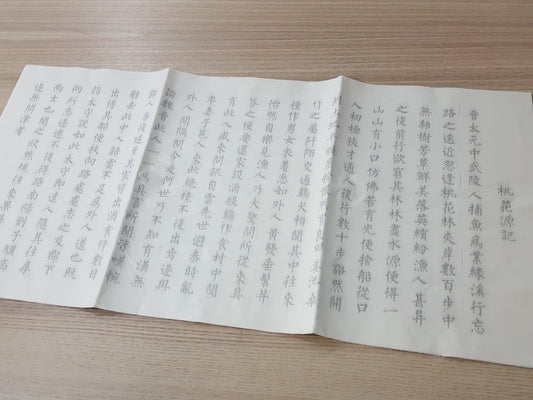 桃花源記
晉太元中武陵人捕魚為業緣溪行忘
路之遠近忽逢桃花林夾岸數百步中
無雜樹芳草鮮美落英繽紛漁人甚異
之復前行欲窮其林林盡水源便得一
山山有小口仿佛若有光便捨船從口
入初極狹才通人復行數十步豁然開
朗土地平曠屋舍儼然有良田美池桑
竹之屬阡陌交通雞犬相聞其中往來
種作男女衣著悉如外人黃發垂髫并
怡然自樂見漁人乃大驚問所從來具
答之便要還家設酒殺雞作食村中聞
有此人咸來問訊自云先世避秦時亂
率妻子邑人來此絕境不復出焉遂與
外人間隔問今是何世乃不知有漢無
論魏晉此人一一為具言所聞皆嘆惋
餘人各復延至其家皆出酒食停數日
辭去此中人語雲不足為外人道也既
出得其船便扶向路處處志之及郡下
詣太守說如此太守即遣人隨其往尋
向所志遂迷不復得路南陽劉子驥高
尚士也聞之欣然規往未果尋
遂無問津者